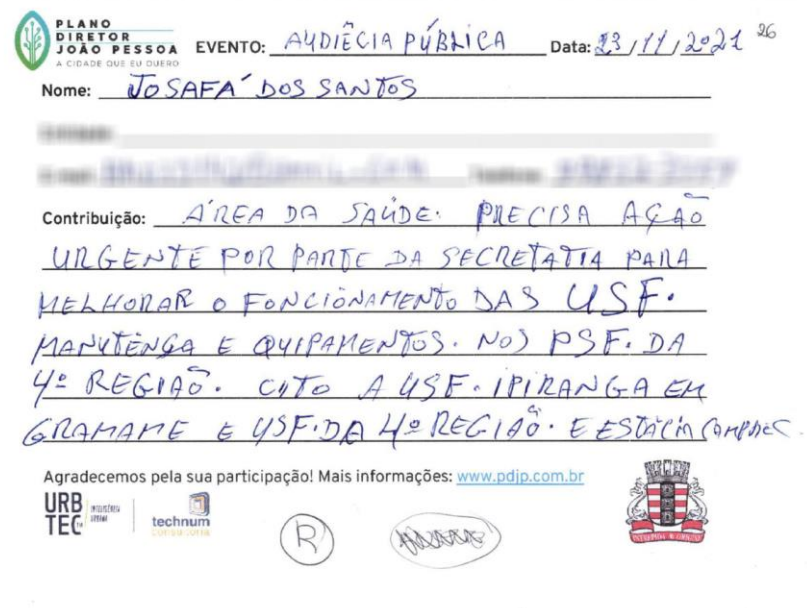 PLANO
DIRETOR
JOÃO PESSOA
A CIDADE QUE EU QUERO
EVENTO: AUDIÊCIA PÚBLICA Data: 23/11/2021 26
Nome: JOSAFÁ DOS SANTOS
Contribuição: ÁREA DA SAÚDE. PRECISA AÇÃO
URGENTE POR PARTE DA SECRETATIA PARA
MELHORAR O FONCIONAMENTO DAS USF.
MANUTENÇA E QUIPAMENTOS. NOS PSF. DA
4ª REGIÃO. CITO A USF. IPIRANGA EM
GRAMAME E USF. DA 4ª REGIÃO. E ESTÁCIA
Agradecemos pela sua participação! Mais informações: www.pdjp.com.br
URB
TEC
INTELIGÊNCIA
URBANA
technum
CONSULTORIA
R